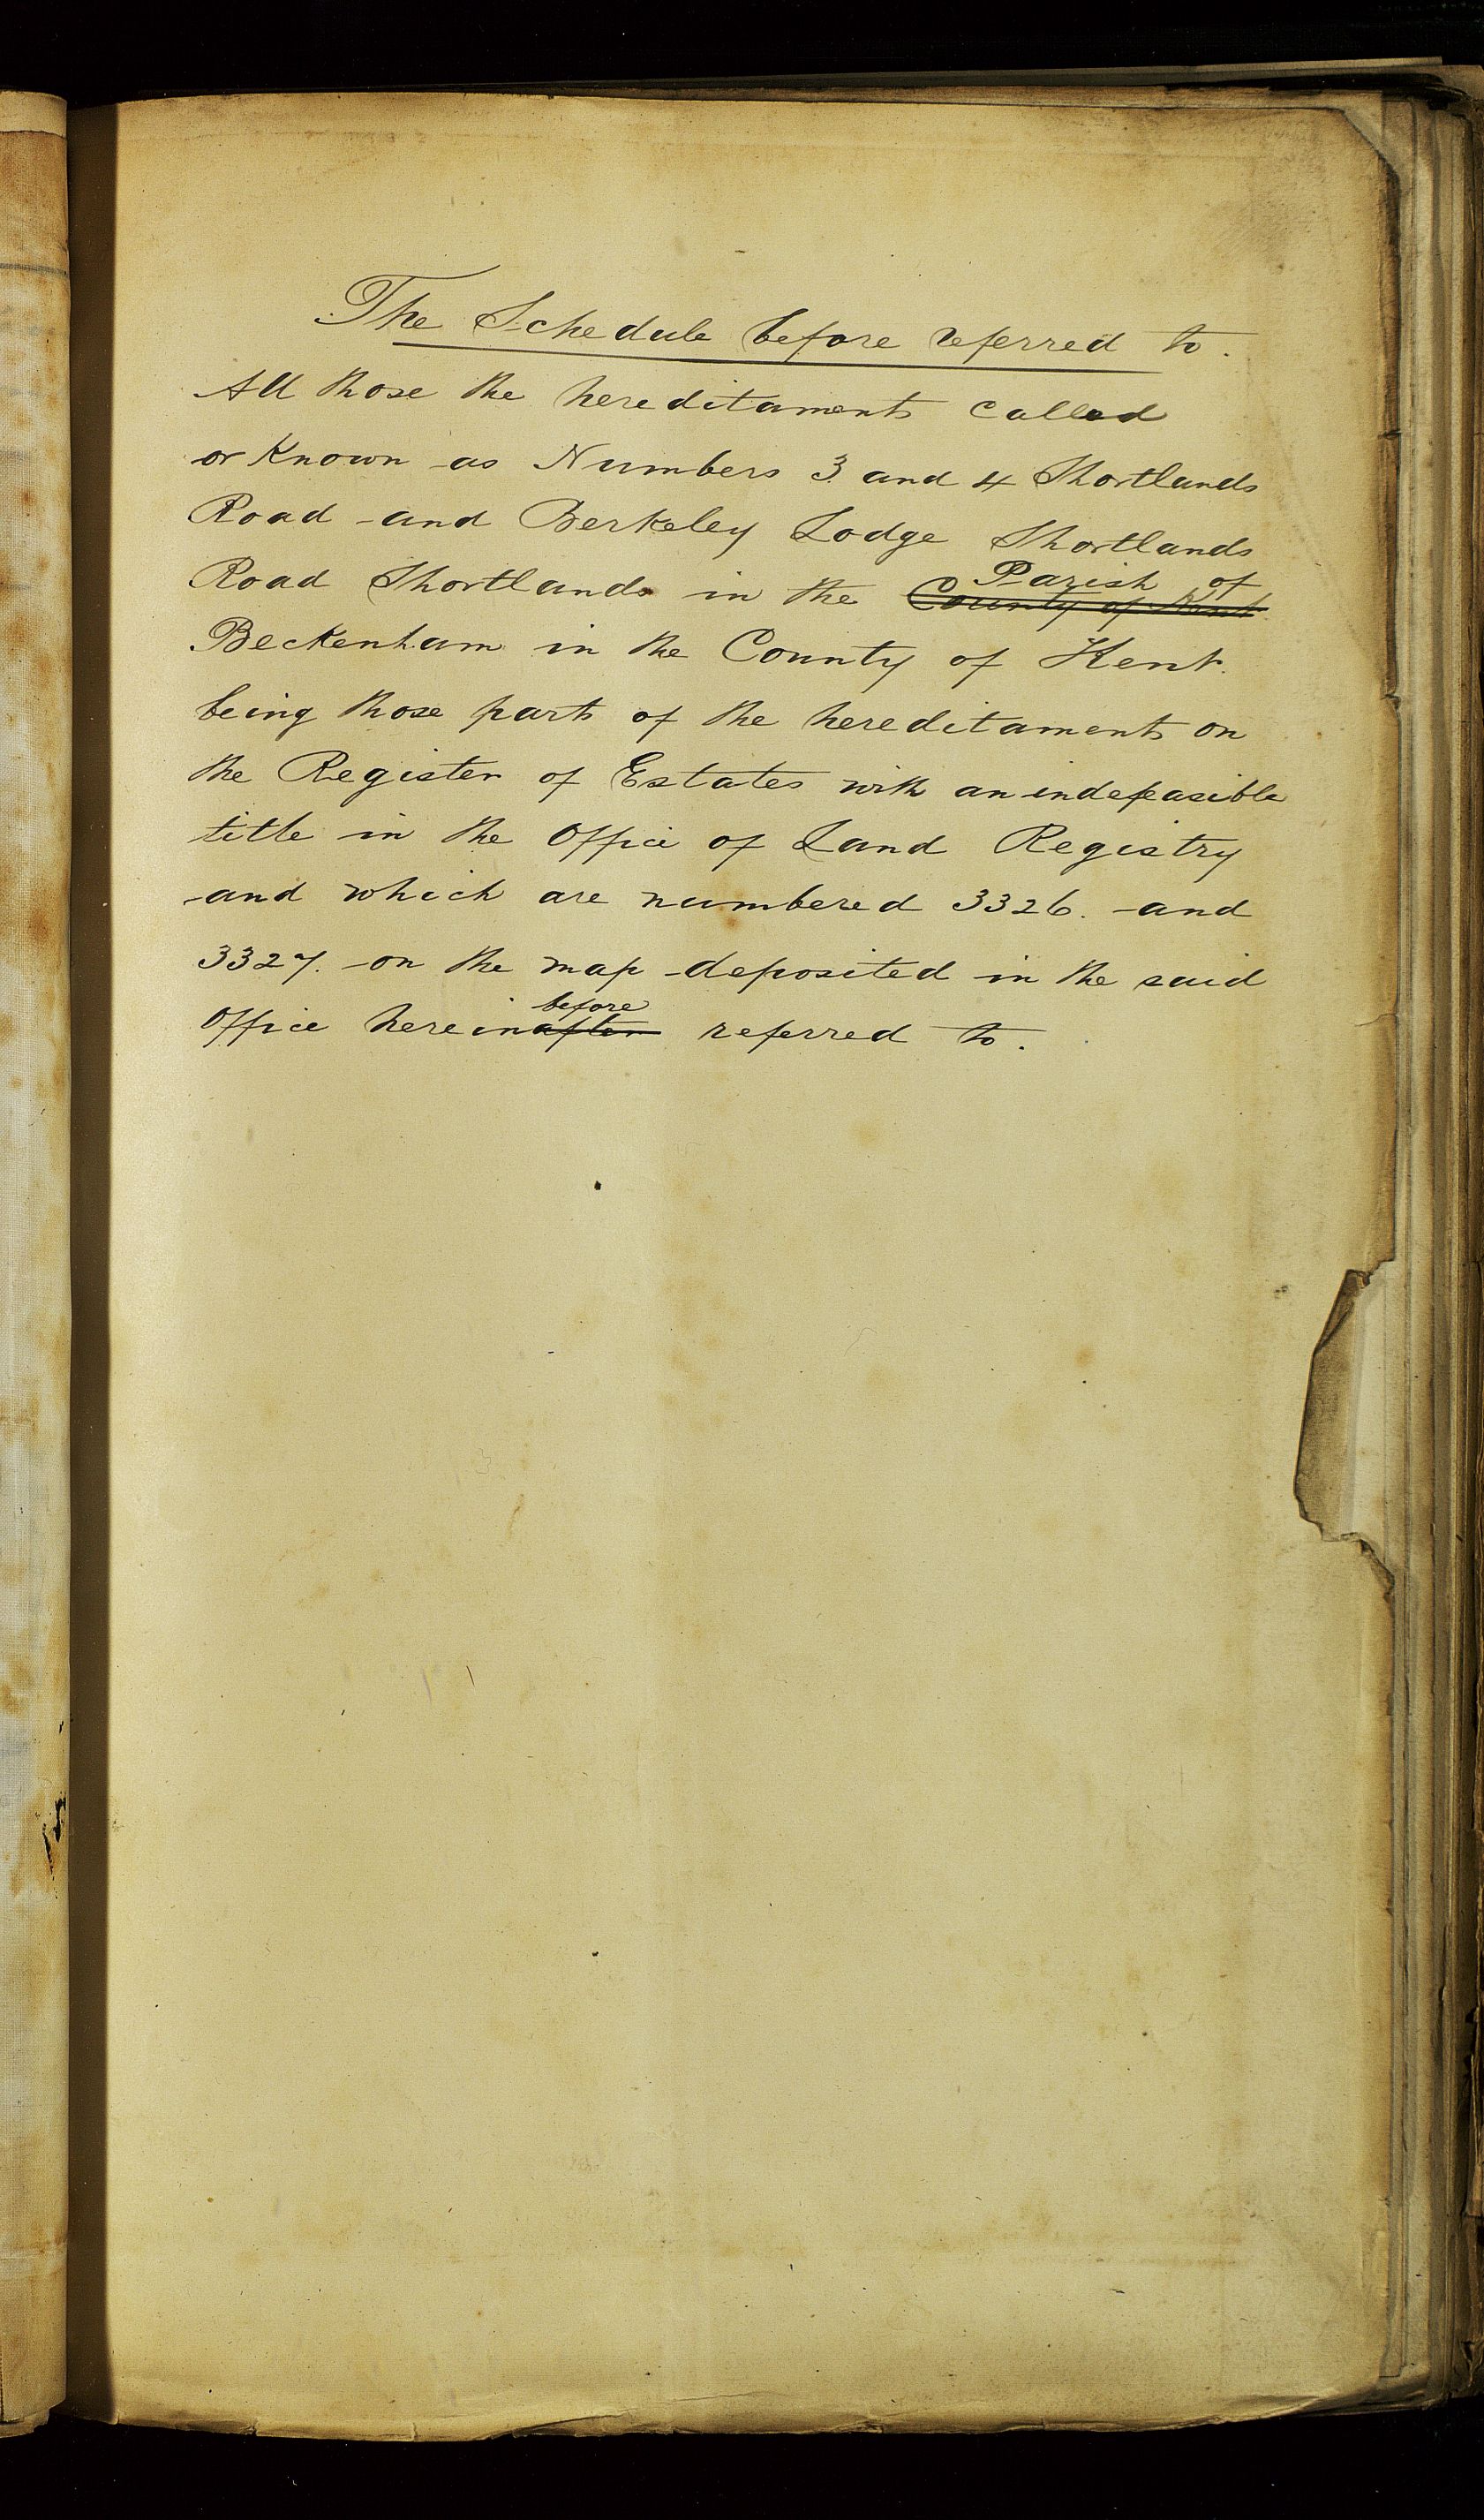 The Schedule before referred to.
All those the hereditaments called
or Known as Numbers 3 and 4 Shortlands
Road and Berkeley Lodge Shortlands
Parish of
Road Shortlands in the County of Kent
Beckenham in the County of Kent.
being those parts of the hereditaments on
the Register of Estates with an indefeasible
title in the Office of Land Registry
and which are numbered 3326. and
3327. on the map deposited in the said
before
Office hereinafter referred to.